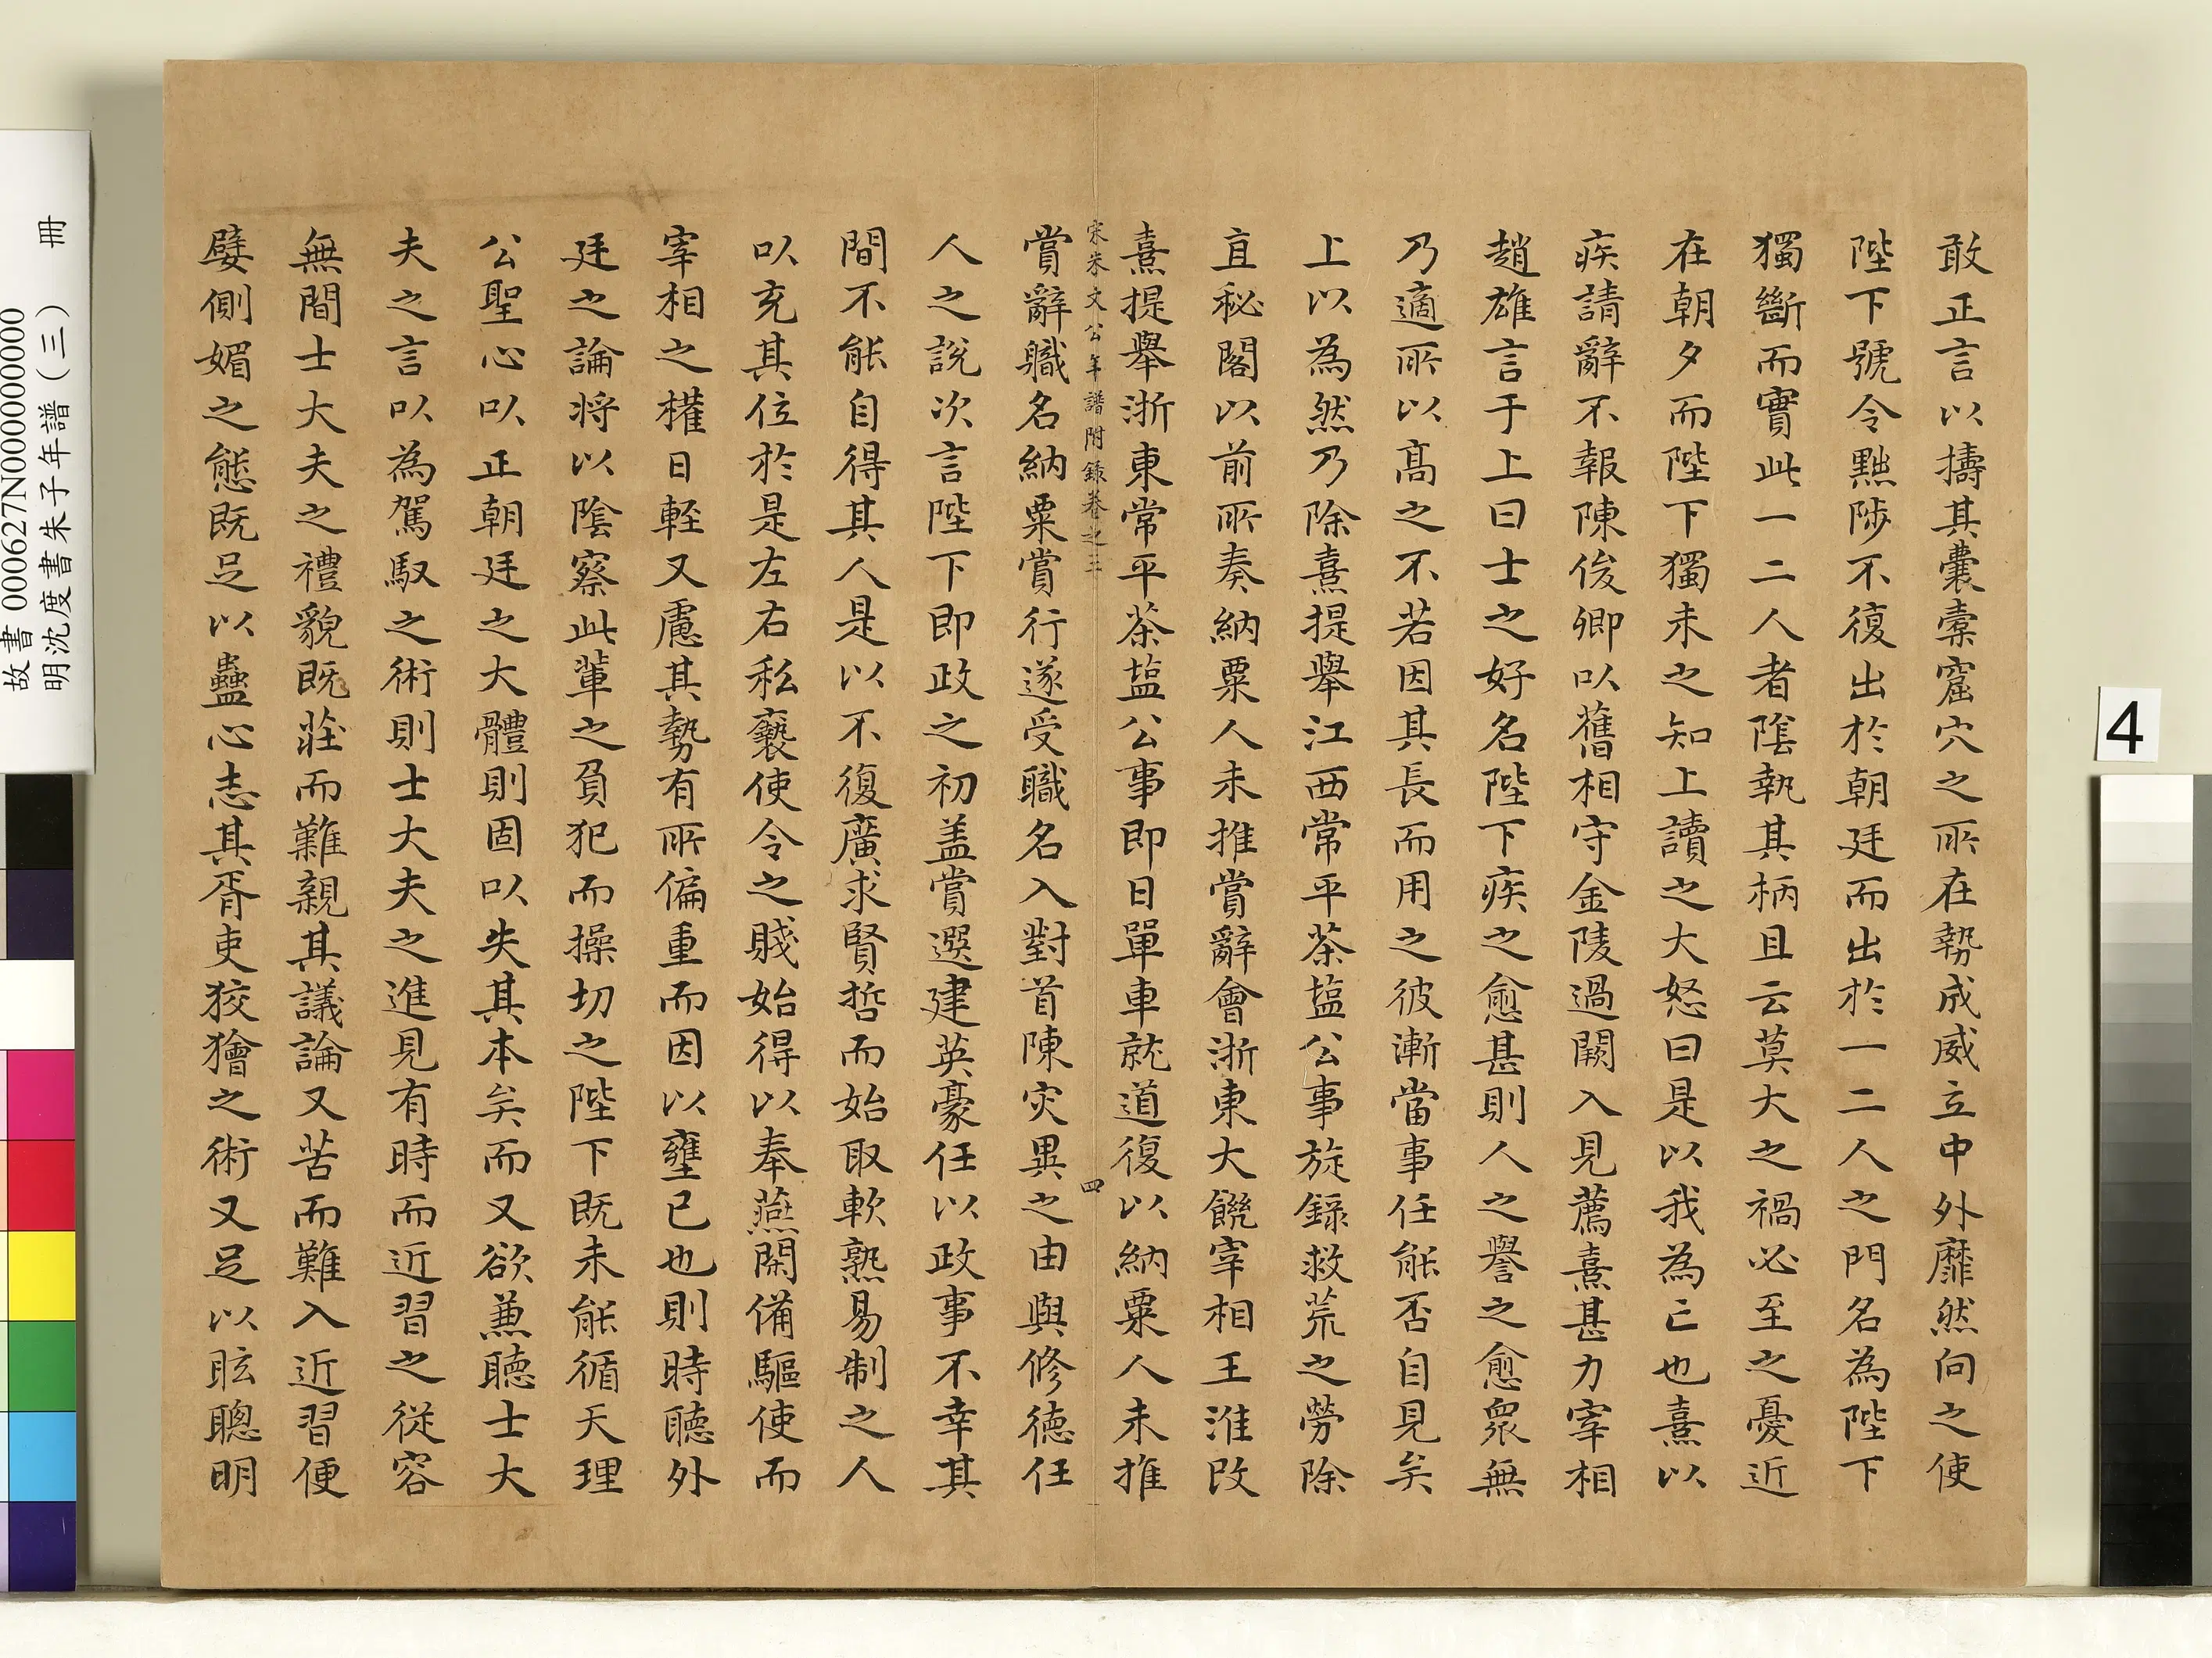 敢正言以擣其囊橐窟穴之所在勢成威立中外靡然向之使
陛下號令黜陟不復出於朝廷而出於一二人之門名為陛下
獨斷而實此一二人者陰執其柄且云莫大之禍必至之憂近
在朝夕而陛下獨未之知上讀之大怒曰是以我為亡也熹以
疾請辭不報陳俊卿以舊相守金陵過闕入見薦熹甚力宰相
趙雄言于上曰士之好名陛下疾之愈甚則人之譽之愈眾無
乃適所以高之不若因其長而用之彼漸當事任能否自見矣
上以為然乃除熹提舉江西常平茶塩公事旋錄救荒之勞除
直秘閣以前所奏納粟人未推賞辭會浙東大饑宰相王淮改
熹提舉浙東常平茶塩公事即日單車就道復以納粟人未推
宋朱文公年譜附錄卷之三
四
賞辭職名納粟賞行遂受職名入對首陳灾異之由與修德任
人之說次言陛下即政之初盖嘗選建英豪任以政事不幸其
間不能自得其人是以不復廣求賢哲而始取軟熟易制之人
以充其位於是左右私褻使令之賤始得以奉燕閒備驅使而
宰相之權日輕又慮其勢有所偏重而因以壅已也則時聽外
廷之論將以陰察此輩之負犯而操切之陛下既未能循天理
公聖心以正朝廷之大體則固以失其本矣而又欲兼聽士大
夫之言以為駕馭之術則士大夫之進見有時而近習之從容
無間士大夫之禮貌既莊而難親其議論又苦而難入近習便
嬖側媚之態既足以蠱心志其胥吏狡獪之術又足以眩聰明
故書 000627N000000000
明沈度書朱子年譜（三） 冊
4